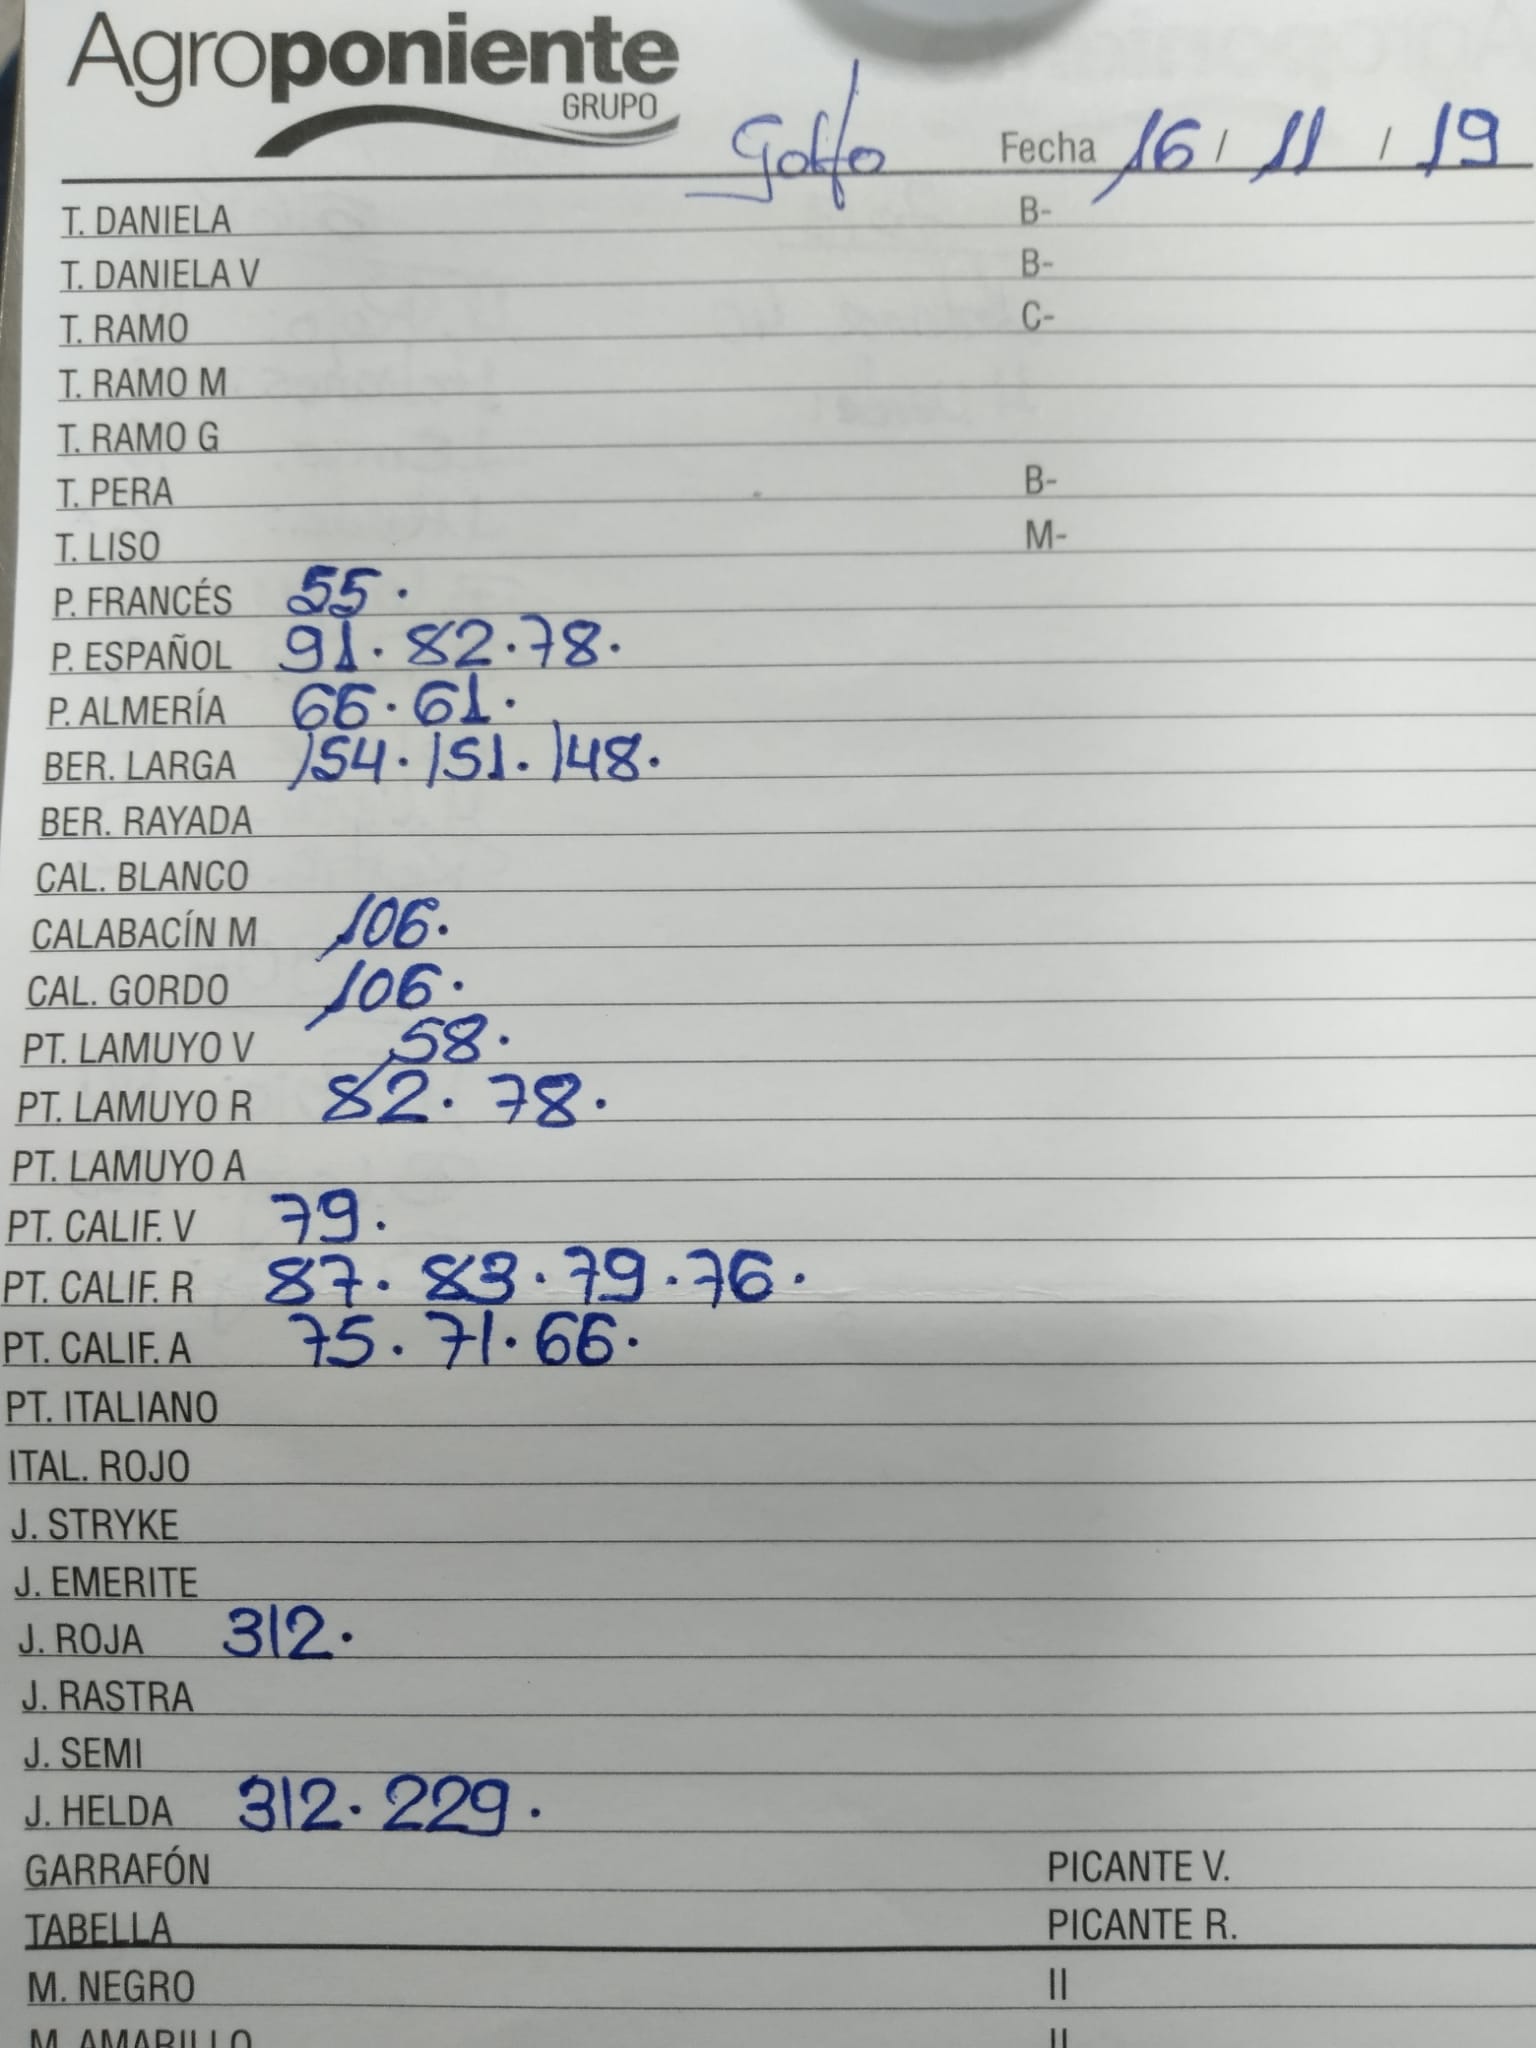 Agroponiente
GRUPO
Golfo Fecha 16 / 11 / 19
T. DANIELA B-
T. DANIELA V B-
T. RAMO C-
T. RAMO M
T. RAMO G
T. PERA B-
T. LISO M-
P. FRANCÉS 55.
P. ESPAÑOL 91. 82. 78.
P. ALMERÍA 66. 61.
BER. LARGA 154. 151. 148.
BER. RAYADA
CAL. BLANCO
CALABACÍN M 106.
CAL. GORDO 106.
PT. LAMUYO V 58.
PT. LAMUYO R 82. 78.
PT. LAMUYO A
PT. CALIF. V 79.
PT. CALIF. R 87. 83. 79. 76.
PT. CALIF. A 75. 71. 66.
PT. ITALIANO
ITAL. ROJO
J. STRYKE
J. EMERITE
J. ROJA 312.
J. RASTRA
J. SEMI
J. HELDA 312. 229.
GARRAFÓN PICANTE V.
TABELLA PICANTE R.
M. NEGRO II
M. AMARILLO II